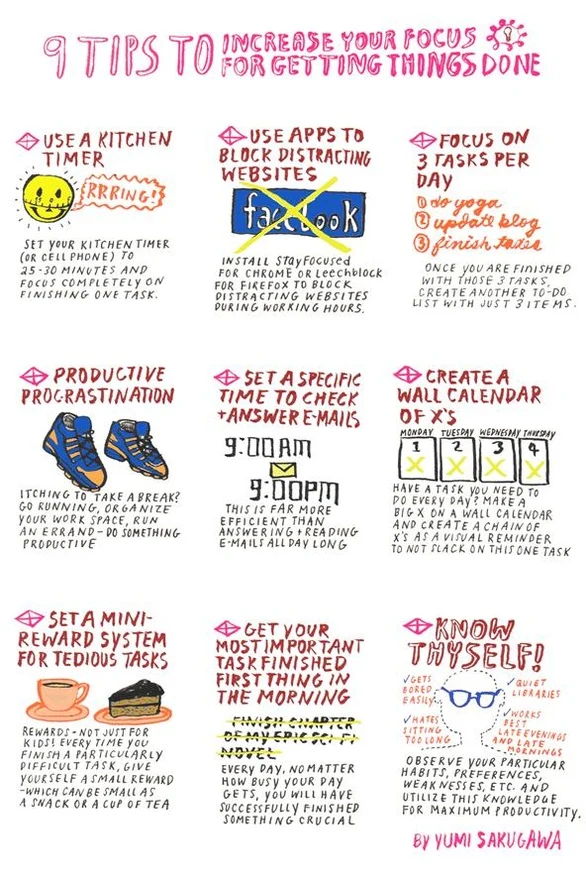 9 TIPS TO INCREASE YOUR FOCUS
FOR GETTING THINGS DONE
USE A KITCHEN
TIMER
RRRING!
SET YOUR KITCHEN TIMER
(OR CELL PHONE) TO
25-30 MINUTES AND
FOCUS COMPLETELY ON
FINISHING ONE TASK.
USE APPS TO
BLOCK DISTRACTING
WEBSITES
facebook
INSTALL StayFocused
FOR CHROME OR LeechBlock
FOR FIREFOX TO BLOCK
DISTRACTING WEBSITES
DURING WORKING HOURS.
FOCUS ON
3 TASKS PER
DAY
1 do yoga
2 update blog
3 finish taxes
ONCE YOU ARE FINISHED
WITH THOSE 3 TASKS,
CREATE ANOTHER TO-DO
LIST WITH JUST 3 ITEMS.
PRODUCTIVE
PROCRASTINATION
ITCHING TO TAKE A BREAK?
GO RUNNING, ORGANIZE
YOUR WORK SPACE, RUN
AN ERRAND - DO SOMETHING
PRODUCTIVE
SET A SPECIFIC
TIME TO CHECK
+ ANSWER E-MAILS
9:00AM
9:00PM
THIS IS FAR MORE
EFFICIENT THAN
ANSWERING + READING
E-MAILS ALL DAY LONG
CREATE A
WALL CALENDAR
OF X'S
MONDAY TUESDAY WEDNESDAY THURSDAY
1 2 3 4
X X X X
HAVE A TASK YOU NEED TO
DO EVERY DAY? MAKE A
BIG X ON A WALL CALENDAR
AND CREATE A CHAIN OF
X'S AS A VISUAL REMINDER
TO NOT SLACK ON THIS ONE TASK
SET A MINI-
REWARD SYSTEM
FOR TEDIOUS TASKS
REWARDS - NOT JUST FOR
KIDS! EVERY TIME YOU
FINISH A PARTICULARLY
DIFFICULT TASK, GIVE
YOURSELF A SMALL REWARD
- WHICH CAN BE SMALL AS
A SNACK OR A CUP OF TEA
GET YOUR
MOST IMPORTANT
TASK FINISHED
FIRST THING IN
THE MORNING
FINISH CHAPTER
OF MY EPIC SCI-FI
NOVEL
EVERY DAY, NO MATTER
HOW BUSY YOUR DAY
GETS, YOU WILL HAVE
SUCCESSFULLY FINISHED
SOMETHING CRUCIAL
KNOW
THYSELF!
✓GETS
BORED
EASILY
✓HATES
SITTING
TOO LONG
✓QUIET
LIBRARIES
✓WORKS
BEST
LATE EVENINGS
AND LATE
MORNINGS
OBSERVE YOUR PARTICULAR
HABITS, PREFERENCES,
WEAKNESSES, ETC. AND
UTILIZE THIS KNOWLEDGE
FOR MAXIMUM PRODUCTIVITY.
BY YUMI SAKUGAWA